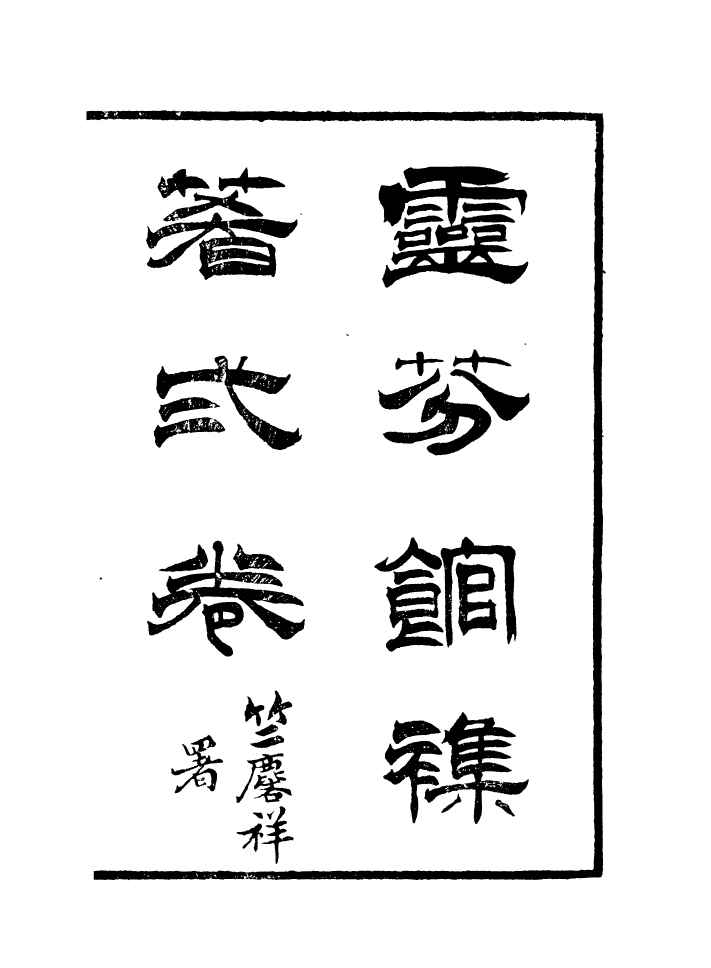 靈芬館襍
著弍卷
竺麐祥
署